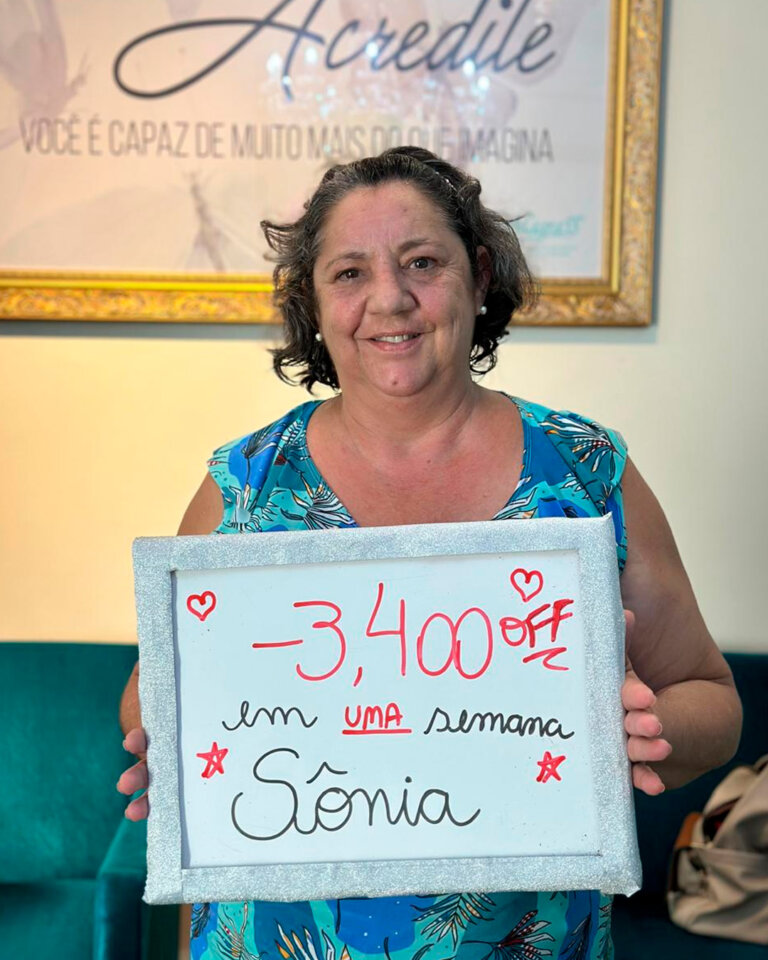 Acredite
VOCÊ É CAPAZ DE MUITO MAIS DO QUE IMAGINA
-3,400 OFF
em UMA semana
Sônia